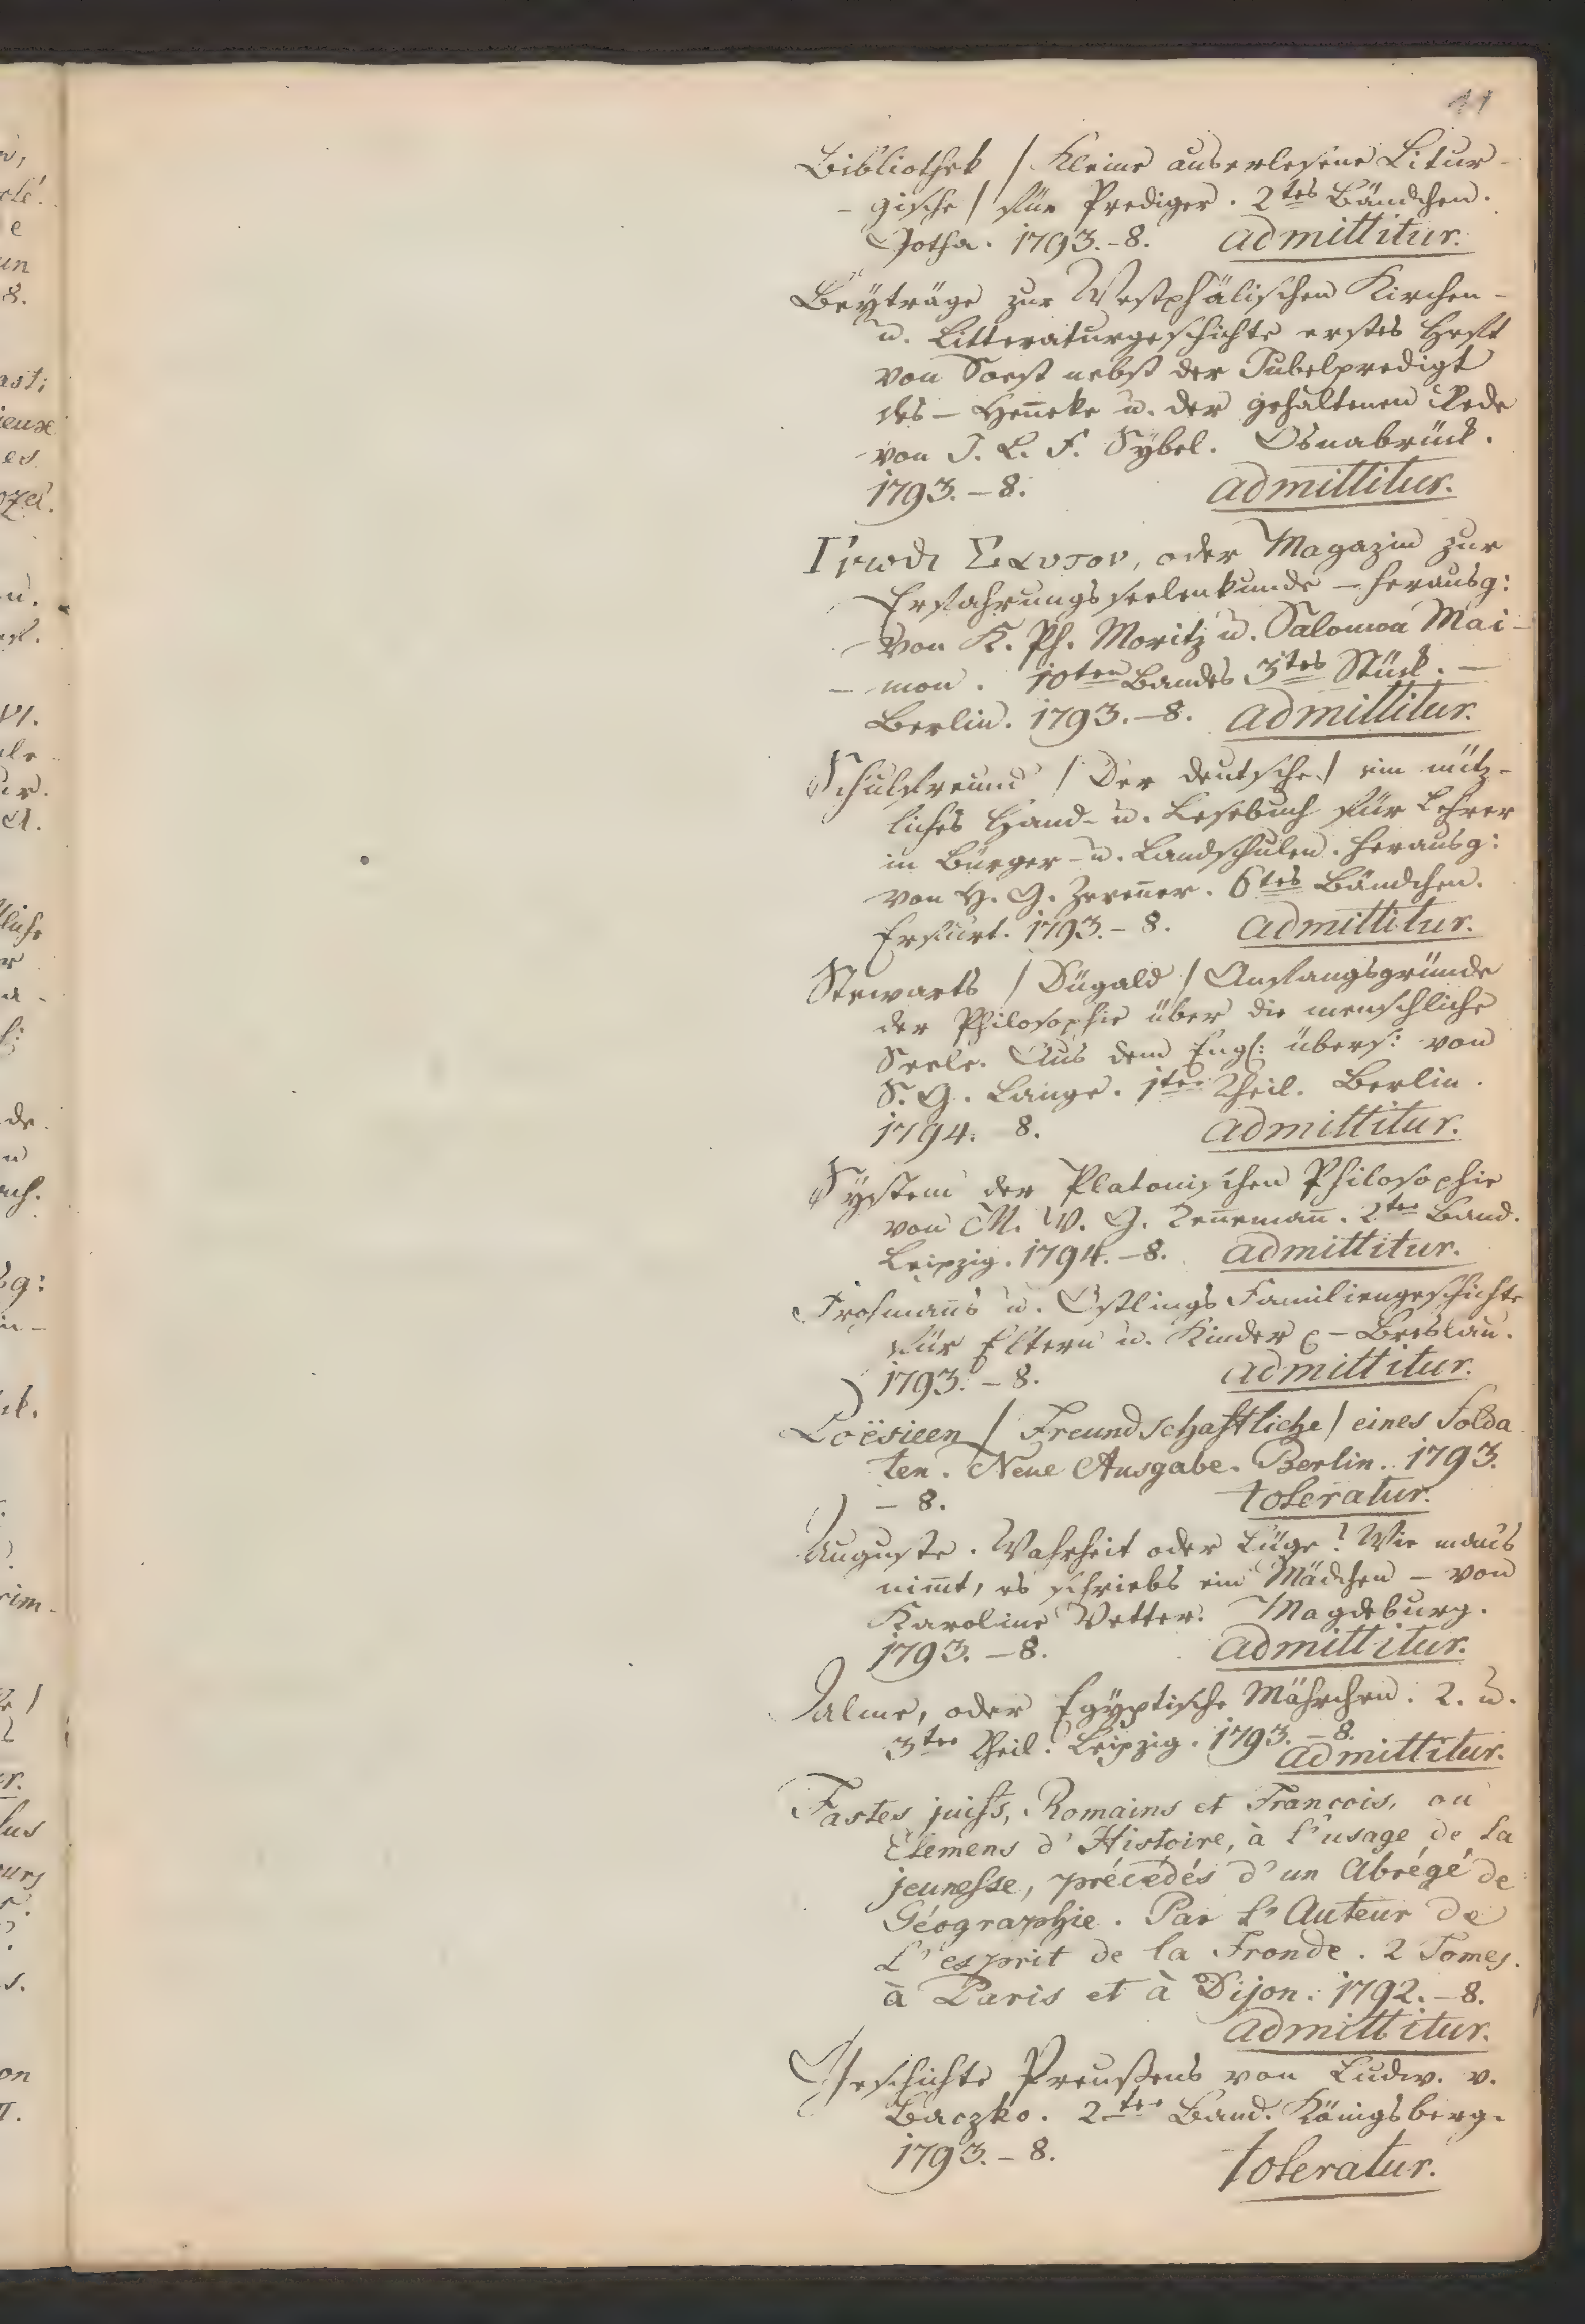 11
Bibliothek / Kleine auserlesene Litur-
- gische / für Prediger. 2tes Bändchen.
Gotha. 1793.-8. admittitur.
Beyträge zur Westphälischen Kirchen-
u. Litteraturgeschichte erstes Heft
von Soest nebst der Jubelpredigt
des - Hen̄eke u. der gehaltenen Rede
von J. L. F. Sybel. Osnabrück.
1793.-8. admittitur.
Γνωδι Σαυτον, oder Magazin zur
Erfahrungsseelenkunde - herausg:
von K. Ph. Moritz u. Salomon Mai-
- mon. 10ten Bandes 3tes Stück. -
Berlin. 1793.-8. admittitur.
Schulfreund / Der deutsche / ein nütz-
liches Hand- u. Lesebuch für Lehrer
in Bürger- u. Landschulen. herausg:
von H. G. Zeren̄er. 6tes Bändchen.
Erfurt. 1793.-8. admittitur.
Stewarts / Dügald / Anfangsgründe
der Philosophie über die menschliche
Seele. Aus dem Engl: übers: von
S. G. Lange. 1ter Theil. Berlin.
1794. 8. admittitur.
System der Platonischen Philosophie
von M. W. G. Ten̄eman̄. 2ter Band.
Leipzig. 1794.-8. admittitur.
Frohman̄s u. Östlings Familiengeschichte
für Eltern u. Kinder - Breslau.
1793.-8. admittitur.
Poësieen / Freundschaftliche / eines Solda
ten. Neue Ausgabe. Berlin. 1793.
- 8. toleratur.
Auguste. Wahrheit oder Lüge! Wie mans
nim̄t, es schriebs ein Mädchen - von
Karoline Vetter. Magdeburg.
1793.-8. admittitur.
Palmer, oder Egyptische Mährchen. 2. u.
3ter Theil. Leipzig. 1793.-8.
admittitur.
Fastes juifs, Romains et Francois, ou
Elemens d'Histoire, à l'usage de la
jeunesse, précédés d'un Abrégé de
Géographie. Par l'Auteur de
L'esprit de la Fronde. 2 Tomes.
à Paris et à Dijon. 1792.-8.
admittitur.
Geschichte Preußens von Ludw. v.
Baczko. 2ter Band. Königsberg.
1793.-8. toleratur.